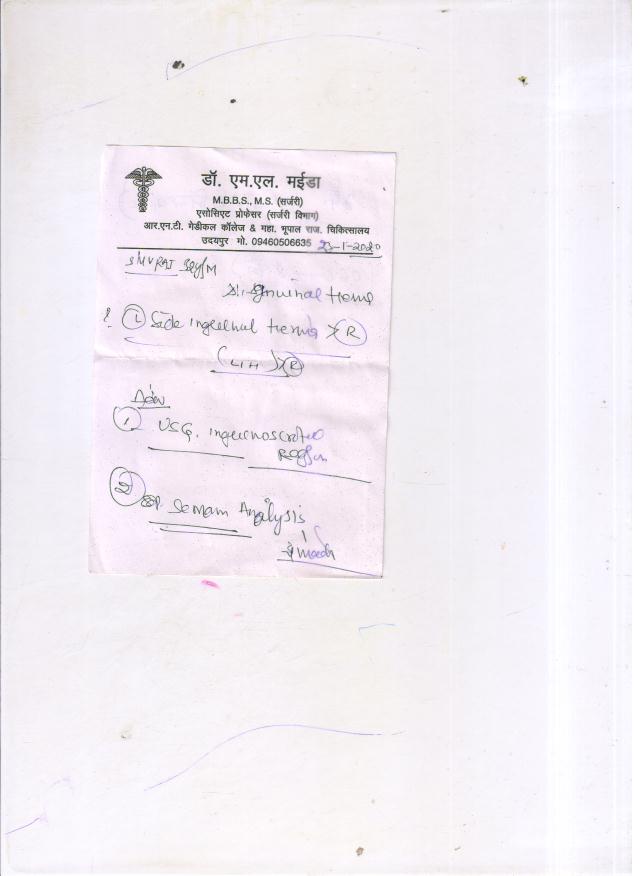 डॉ. एम.एल. मईडा
M.B.B.S., M.S. (सर्जरी)
एसोसिएट प्रोफेसर (सर्जरी विभाग)
आर.एन.टी. मेडीकल कॉलेज & महा. भूपाल राज. चिकित्सालय
उदयपुर मो. 09460506635 23-1-2020
Hernia
? (L) Side inguinal Hernia > (R)
(LIH) > (R)
Adv
1. USG. inguinoscrotal
Region
2. Semam Analysis